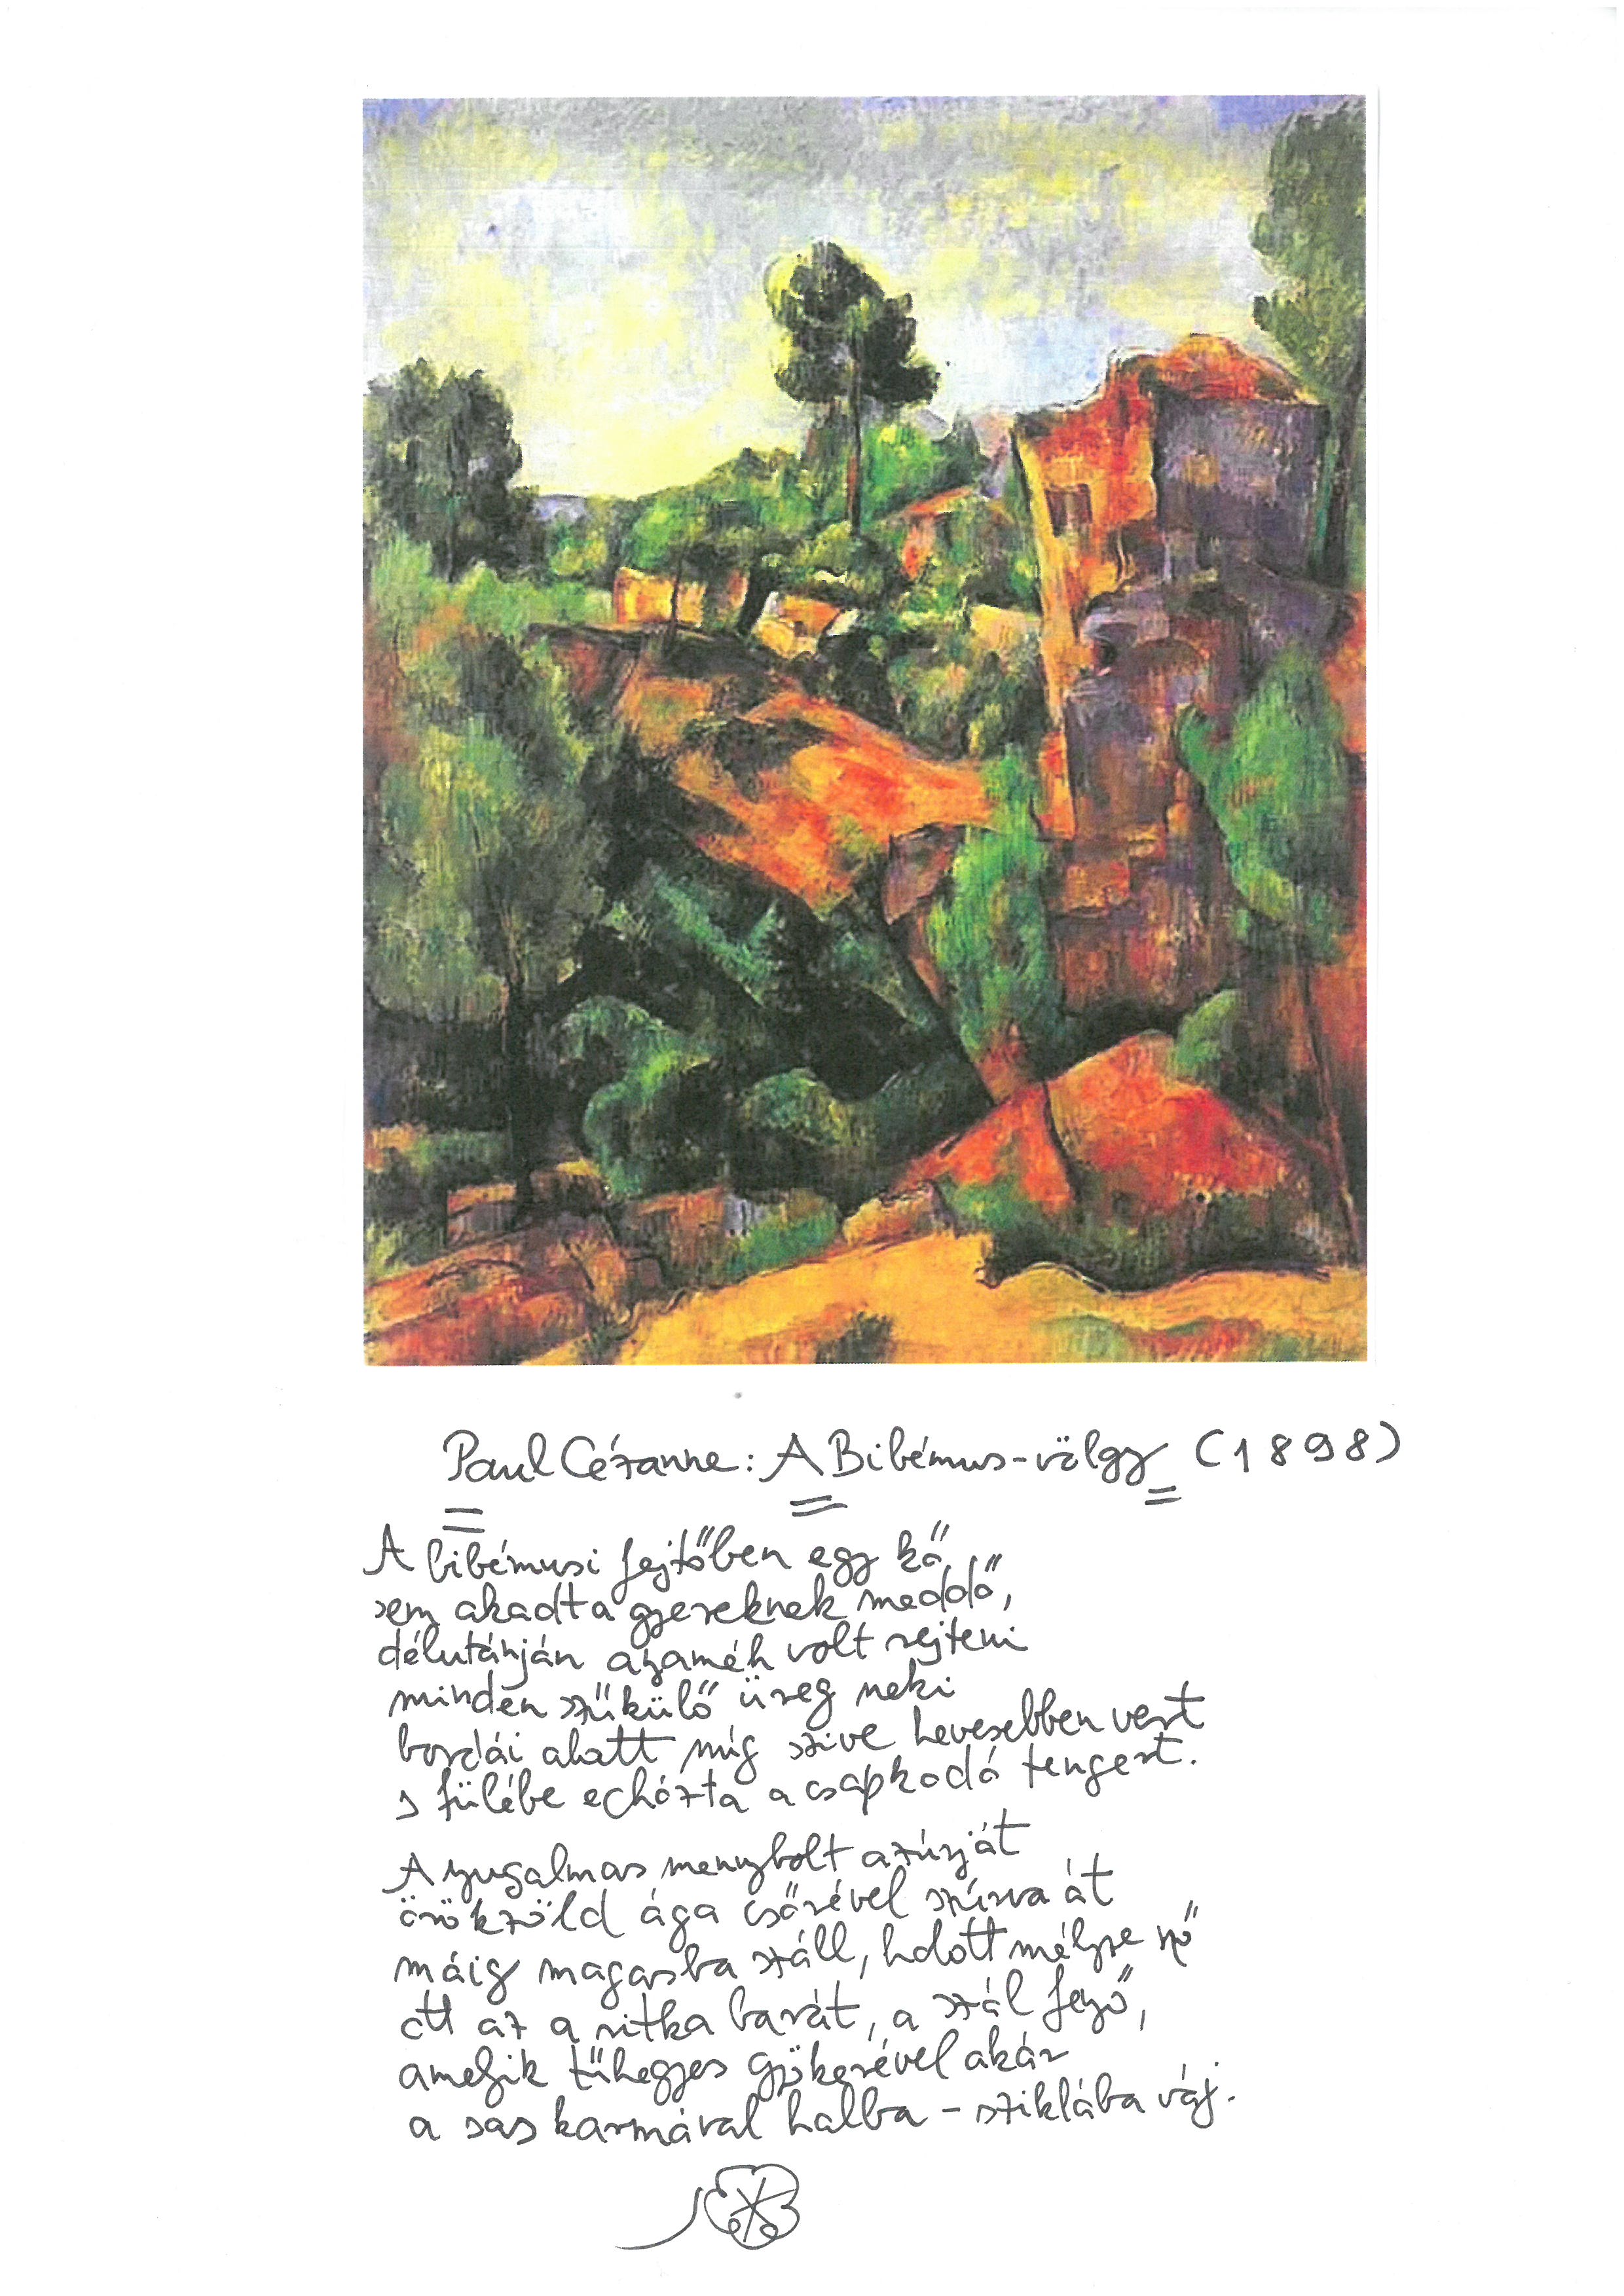 Paul Cézanne: A Bibémus-völgy (1898)
A bibémusi fejtőben egy kő
sem akadt a gyereknek meddő,
délutánján azaméh volt rejteni
minden szűkülő üreg neki
bordái alatt míg szive hevesebben vert
s fülébe echózta a csapkodó tengert.
A nyugalmas menybolt azúrját
örökzöld ága csőrével szúrva át
máig magasba száll, holott mélyre nő
ott az a ritka barát, a szál fenyő,
amelyik tűhegyes gyökerével akár
a sas karmával halba – sziklába váj.